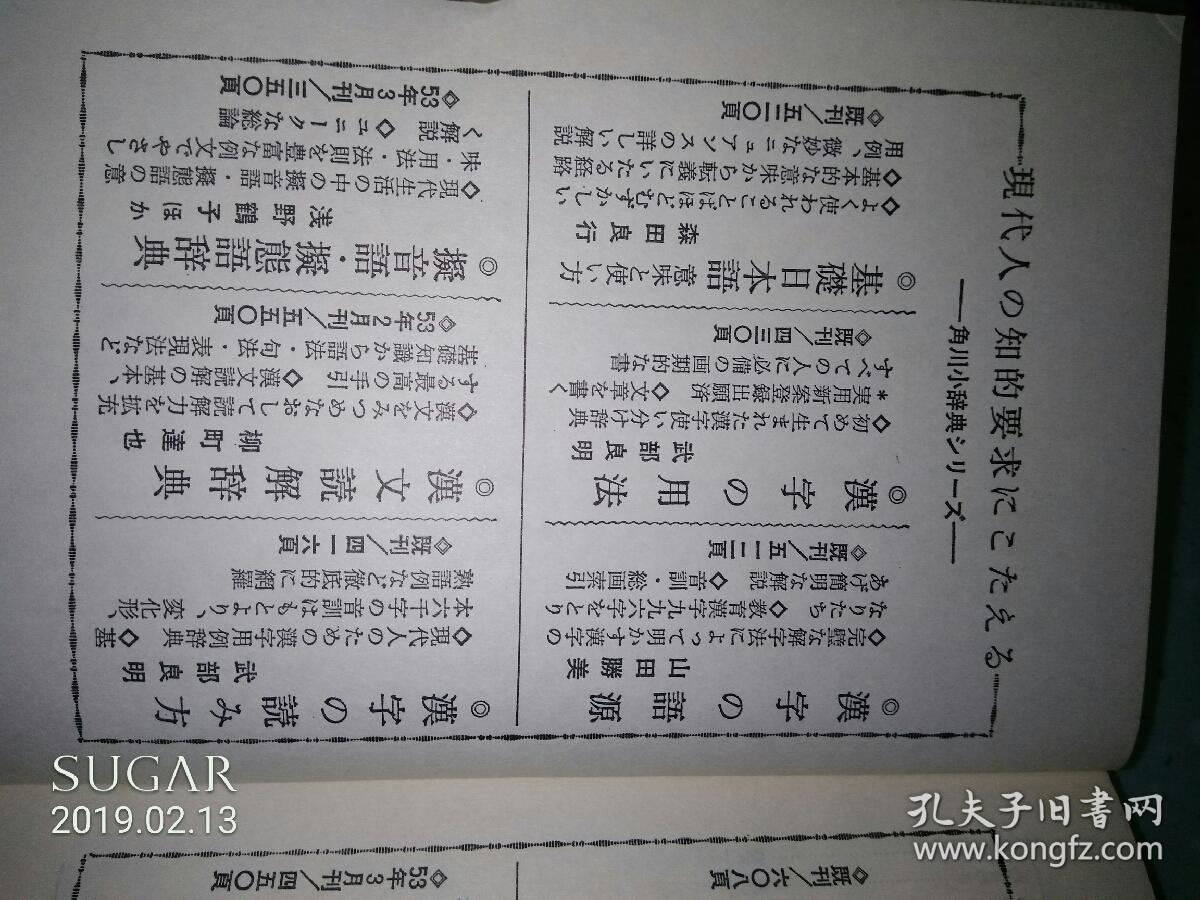 現代人の知的要求にこたえる
―角川小辞典シリーズ―
◎漢字の語源
山田勝美
◇完璧な解字法によって明かす漢字の
なりたち ◇教育漢字九九六字をとり
あげ簡明な解説 ◇音訓・総画索引
◇既刊/五一二頁
◎漢字の用法
武部良明
◇初めて生まれた漢字使い分け辞典
*実用新案登録出願済 ◇文章を書く
すべての人に必備の画期的な書
◇既刊/四三〇頁
◎基礎日本語 意味と使い方
森田良行
◇よく使われることばほどむずかしい
◇基本的な意味から転義にいたる経路
用例、微妙なニュアンスの詳しい解説
◇既刊/五二〇頁
◎漢字の読み方
武部良明
◇現代人のための漢字用例辞典 ◇基
本六千字の音訓はもとより、変化形、
熟語例など徹底的に網羅
◇既刊/四一六頁
◎漢文読解辞典
柳町達也
◇漢文をみつめなおして読解力を拡充
する最高の手引 ◇漢文読解の基本、
基礎知識から語法・句法・表現法など
◇53年2月刊/五五〇頁
◎擬音語・擬態語辞典
浅野鶴子ほか
◇現代生活の中の擬音語・擬態語の意
味・用法・法則を豊富な例文でやさし
く解説 ◇ユニークな総論
◇53年3月刊/三五〇頁
◇既刊/六〇八頁
◇53年3月刊/四五〇頁
SUGAR
2019.02.13
孔夫子旧书网
www.kongfz.com